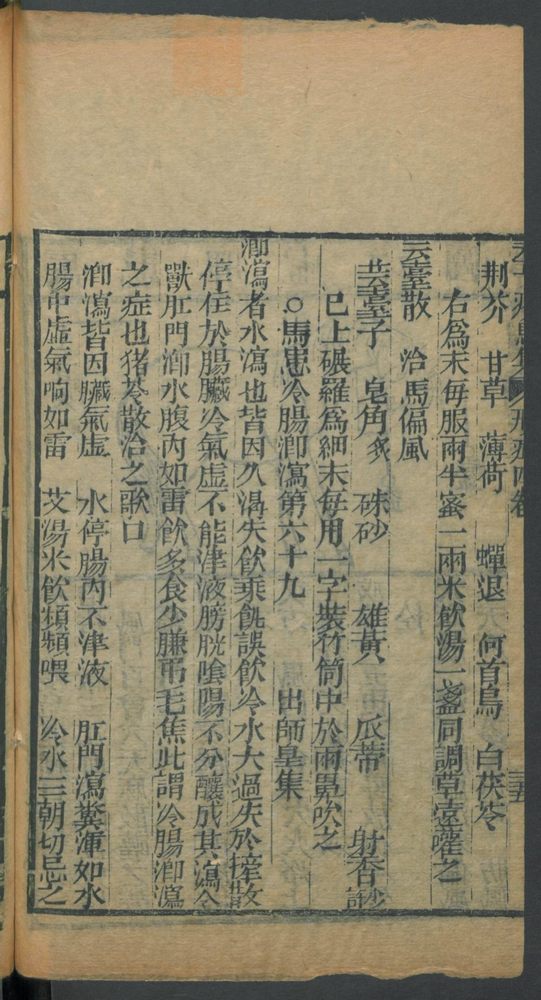 荆芥 甘草 薄荷 蟬退 何首烏 白茯苓
右爲末每服兩半蜜一兩米飲湯一盞同調草壹灌之
云臺散 治馬偏風
芸臺子 皂角炙 硃砂 雄黃 瓜蒂 射香
已上碾羅爲細末每用一字裝竹筒中於兩鼻吹之
○馬患冷腸㵼瀉第六十九 出師皇集
瀉者水瀉也皆因久渴失飲乘飢誤飲冷水大過失於牽散
停住於腸臟冷氣虛不能津液膀胱陰陽不分釀成其瀉令
獸肛門水腹內如雷飲多食少賺吊毛焦此謂冷腸瀉
之症也猪苓散治之歌曰
瀉皆因臟氣虛 水停腸內不津液 肛門瀉糞渾如水
腸中虛氣响如雷 艾湯米飲頻頻喂 冷水三朝切忌之
三五